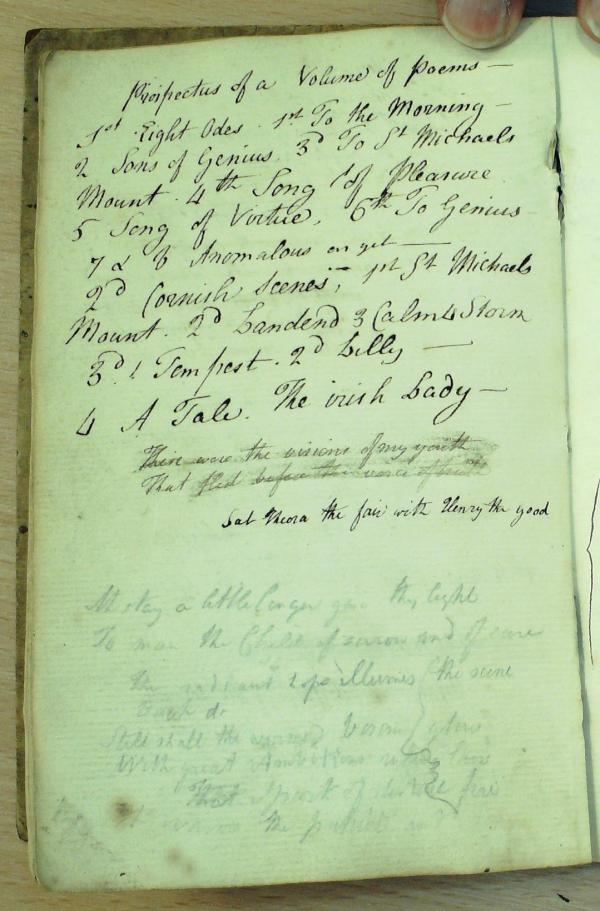 Prospectus of a Volume of Poems —
1st Eight Odes. 1st To the Morning —
2 Sons of Genius. 3d To St Michaels
Mount. 4th Song of Pleasure
5 Song of Virtue. 6th To Genius
7 & 8 Anomalous as yet —
2d Cornish Scenes; 1st St Michaels
Mount. 2d Landend 3 Calm 4 Storm
3d. 1 Tempest. 2d Lilly —
4 A Tale. The irish Lady —
These were the visions of my youth
That fled before the voice of truth
Sat Theora the fair with Henry the good
stay a little longer thy light
To man the Child of sorrow and of care
The radiant hope illumes the scene
Still shall the bosom glow
With great Ambitions
That spark of fire
the